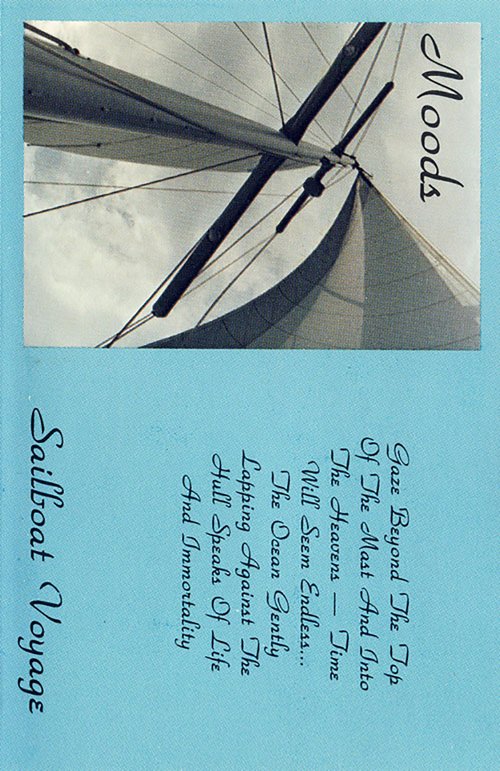 Moods
Gaze Beyond The Top
Of The Mast And Into
The Heavens — Time
Will Seem Endless...
The Ocean Gently
Lapping Against The
Hull Speaks Of Life
And Immortality
Sailboat Voyage